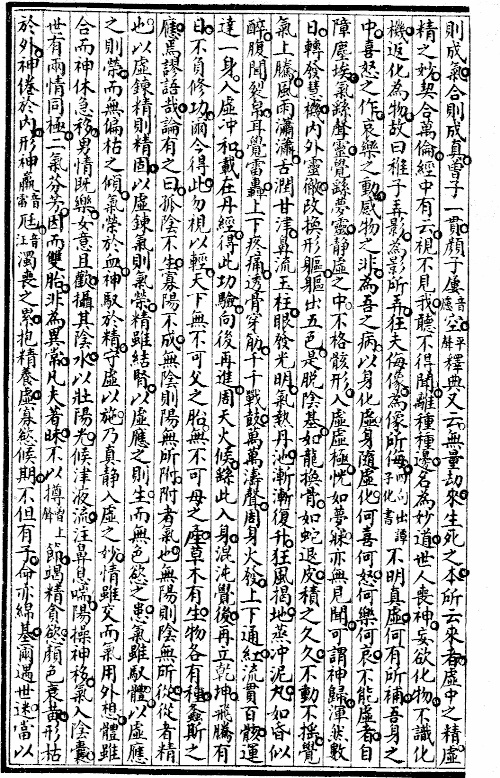 則成氣合則成真曽子一貫顔子僡音應空上聲釋典又云無量劫來生死之本所云來者虛中之精虛
精之妙契合萬倫經中有云視不見我聽不得聞離種種邊名為妙道世人喪神妄欲化物不識化
機返化為物故曰稚子弄影為影所弄狂夫侮像為像所侮四句出譚子化書不明真虛何有所補吾身之
中喜怒之作哀樂之動感物之非為吾之病以身化虛身隨虛化何喜何怒何樂何哀不能虛者自
障塵埃氣繇聲靈覺繇夢靈靜虛之中不格骸形入虛虛極恍如夢寐亦無見聞可謂神歸渾狀數
日轉發慧機內外靈徹改換形軀軀出五色是脫陰基如龍換骨如蛇退皮積之久久不動不搖覺
氣上騰風雨瀟瀟古潤甘津鼻流玉柱眼發光明氣熱丹池漸漸復升狂風揭地烝沖泥丸如昏似
醉腹聞裂帛耳覺雷轟上下疼痛透骨穿筋千千戰鼓萬萬濤聲周身火發上下通紅流貫百骸運
達一身入虛沖和載在丹經得此功驗向後再進周天火候繇此入身混沌覺後再立乾坤飛騰有
日不負修功爾今得此勿視以輕天下無不可父之胎無不可母之產草木有生物各有種螽斯之
應焉謬語哉論有之曰孤陰不生寡陽不成無陰則陽無所附附者氣也無陽則陰無所從從者精
也以虛鍊精則精固以虛鍊氣則氣榮精雖結腎以虛應之則生而無色欲之患氣雖馭體以虛應
之則榮而無偏枯之傾氣榮於血神馭於精守虛以施乃真靜入虛之妙情雖交而氣用外想體雖
合而神休急移男情既樂女意且歡攝其陰水以壯陽光候津液流注鼻息喘陽操神移氣入陰囊
世有兩情同極二氣分芳因而雙胎非為異常凡夫著昧不以撙音上節竭精貪欲顔色衰黃形枯
於外神倦於內形神羸音雷尪音汪濁喪之累抱精養虛寡慾候期不但有子命亦綿基爾遇世迷當以